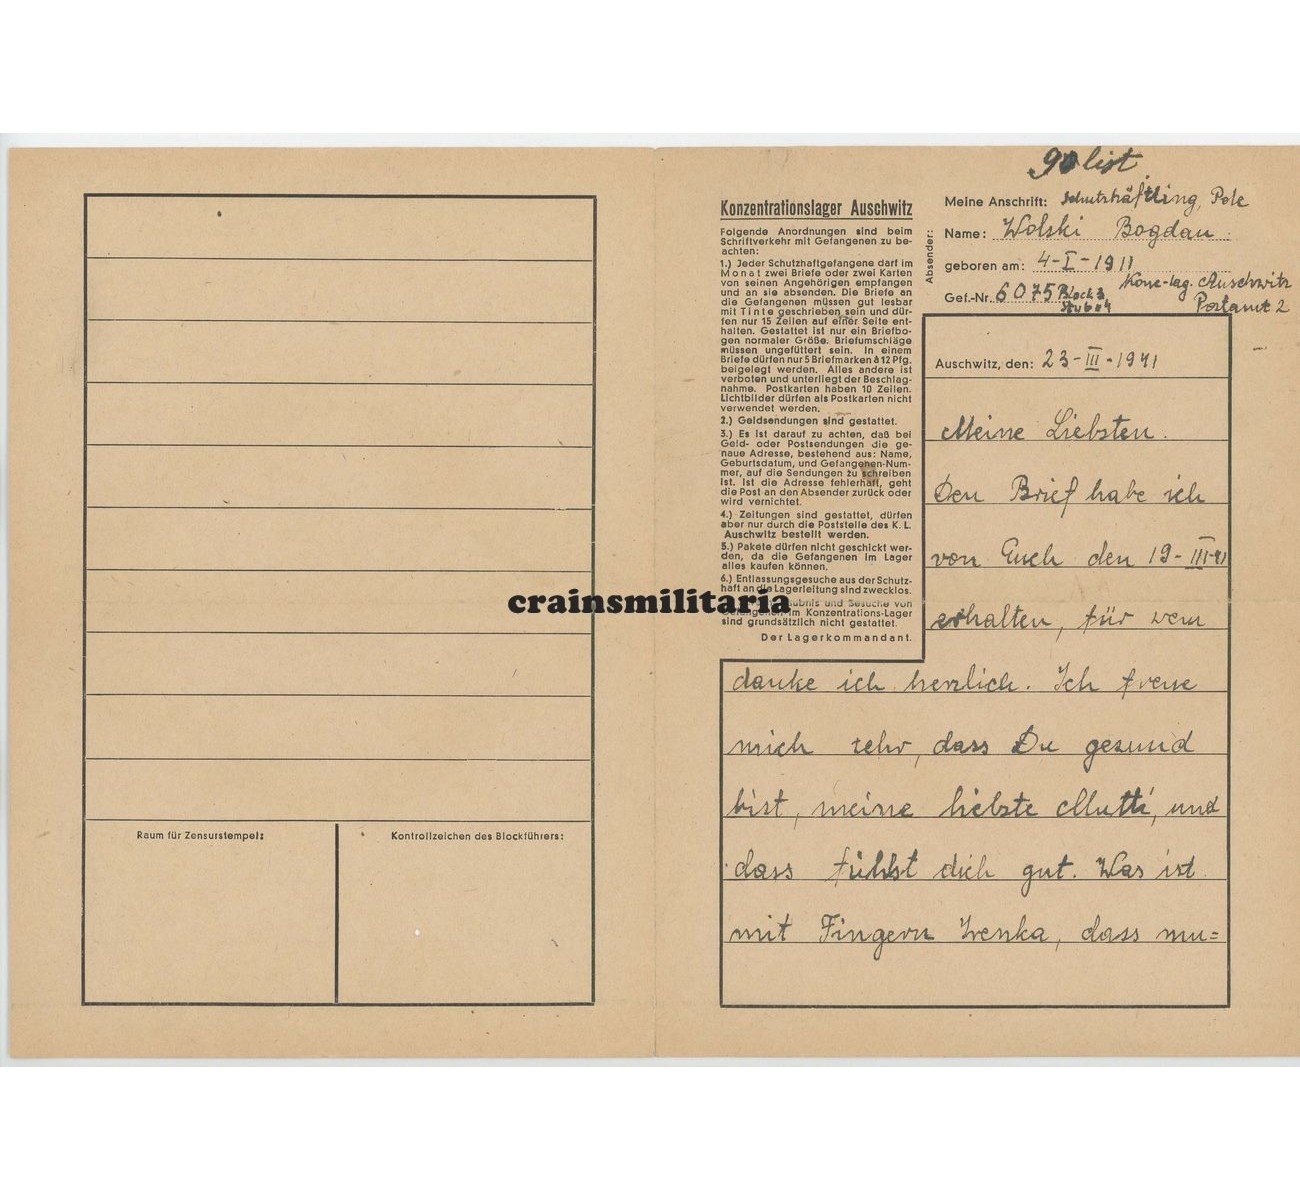 90 list
Konzentrationslager Auschwitz
Folgende Anordnungen sind beim
Schriftverkehr mit Gefangenen zu be-
achten:
1.) Jeder Schutzhaftgefangene darf im
Monat zwei Briefe oder zwei Karten
von seinen Angehörigen empfangen
und an sie absenden. Die Briefe an
die Gefangenen müssen gut lesbar
mit Tinte geschrieben sein und dür-
fen nur 15 Zeilen auf einer Seite ent-
halten. Gestattet ist nur ein Briefbo-
gen normaler Größe. Briefumschläge
müssen ungefüttert sein. In einem
Briefe dürfen nur 5 Briefmarken à 12 Pfg.
beigelegt werden. Alles andere ist
verboten und unterliegt der Beschlag-
nahme. Postkarten haben 10 Zeilen.
Lichtbilder dürfen als Postkarten nicht
verwendet werden.
2.) Geldsendungen sind gestattet.
3.) Es ist darauf zu achten, daß bei
Geld- oder Postsendungen die ge-
naue Adresse, bestehend aus: Name,
Geburtsdatum, und Gefangenen-Num-
mer, auf die Sendungen zu schreiben
ist. Ist die Adresse fehlerhaft, geht
die Post an den Absender zurück oder
wird vernichtet.
4.) Zeitungen sind gestattet, dürfen
aber nur durch die Poststelle des K. L.
Auschwitz bestellt werden.
5.) Pakete dürfen nicht geschickt wer-
den, da die Gefangenen im Lager
alles kaufen können.
6.) Entlassungsgesuche aus der Schutz-
haft an die Lagerleitung sind zwecklos.
und Besuche von
Gefangenen im Konzentrations-Lager
sind grundsätzlich nicht gestattet.
Der Lagerkommandant.
Absender:
Meine Anschrift: Schutzhäftling, Pole
Name: Wolski Bogdan
geboren am: 4-I-1911
Gef.-Nr. 6075 Block 3
Stube 4
Konz-Lag. Auschwitz
Postamt 2
Auschwitz, den: 23-III-1941
Meine Liebsten.
Den Brief habe ich
von Euch den 19-III-41
erhalten, für wem
danke ich herzlich. Ich freue
mich sehr, dass Du gesund
bist, meine liebste Mutti, und
dass fühlst dich gut. Was ist
mit Fingern Irenka, dass mu=
Raum für Zensurstempel:
Kontrollzeichen des Blockführers:
crainsmilitaria